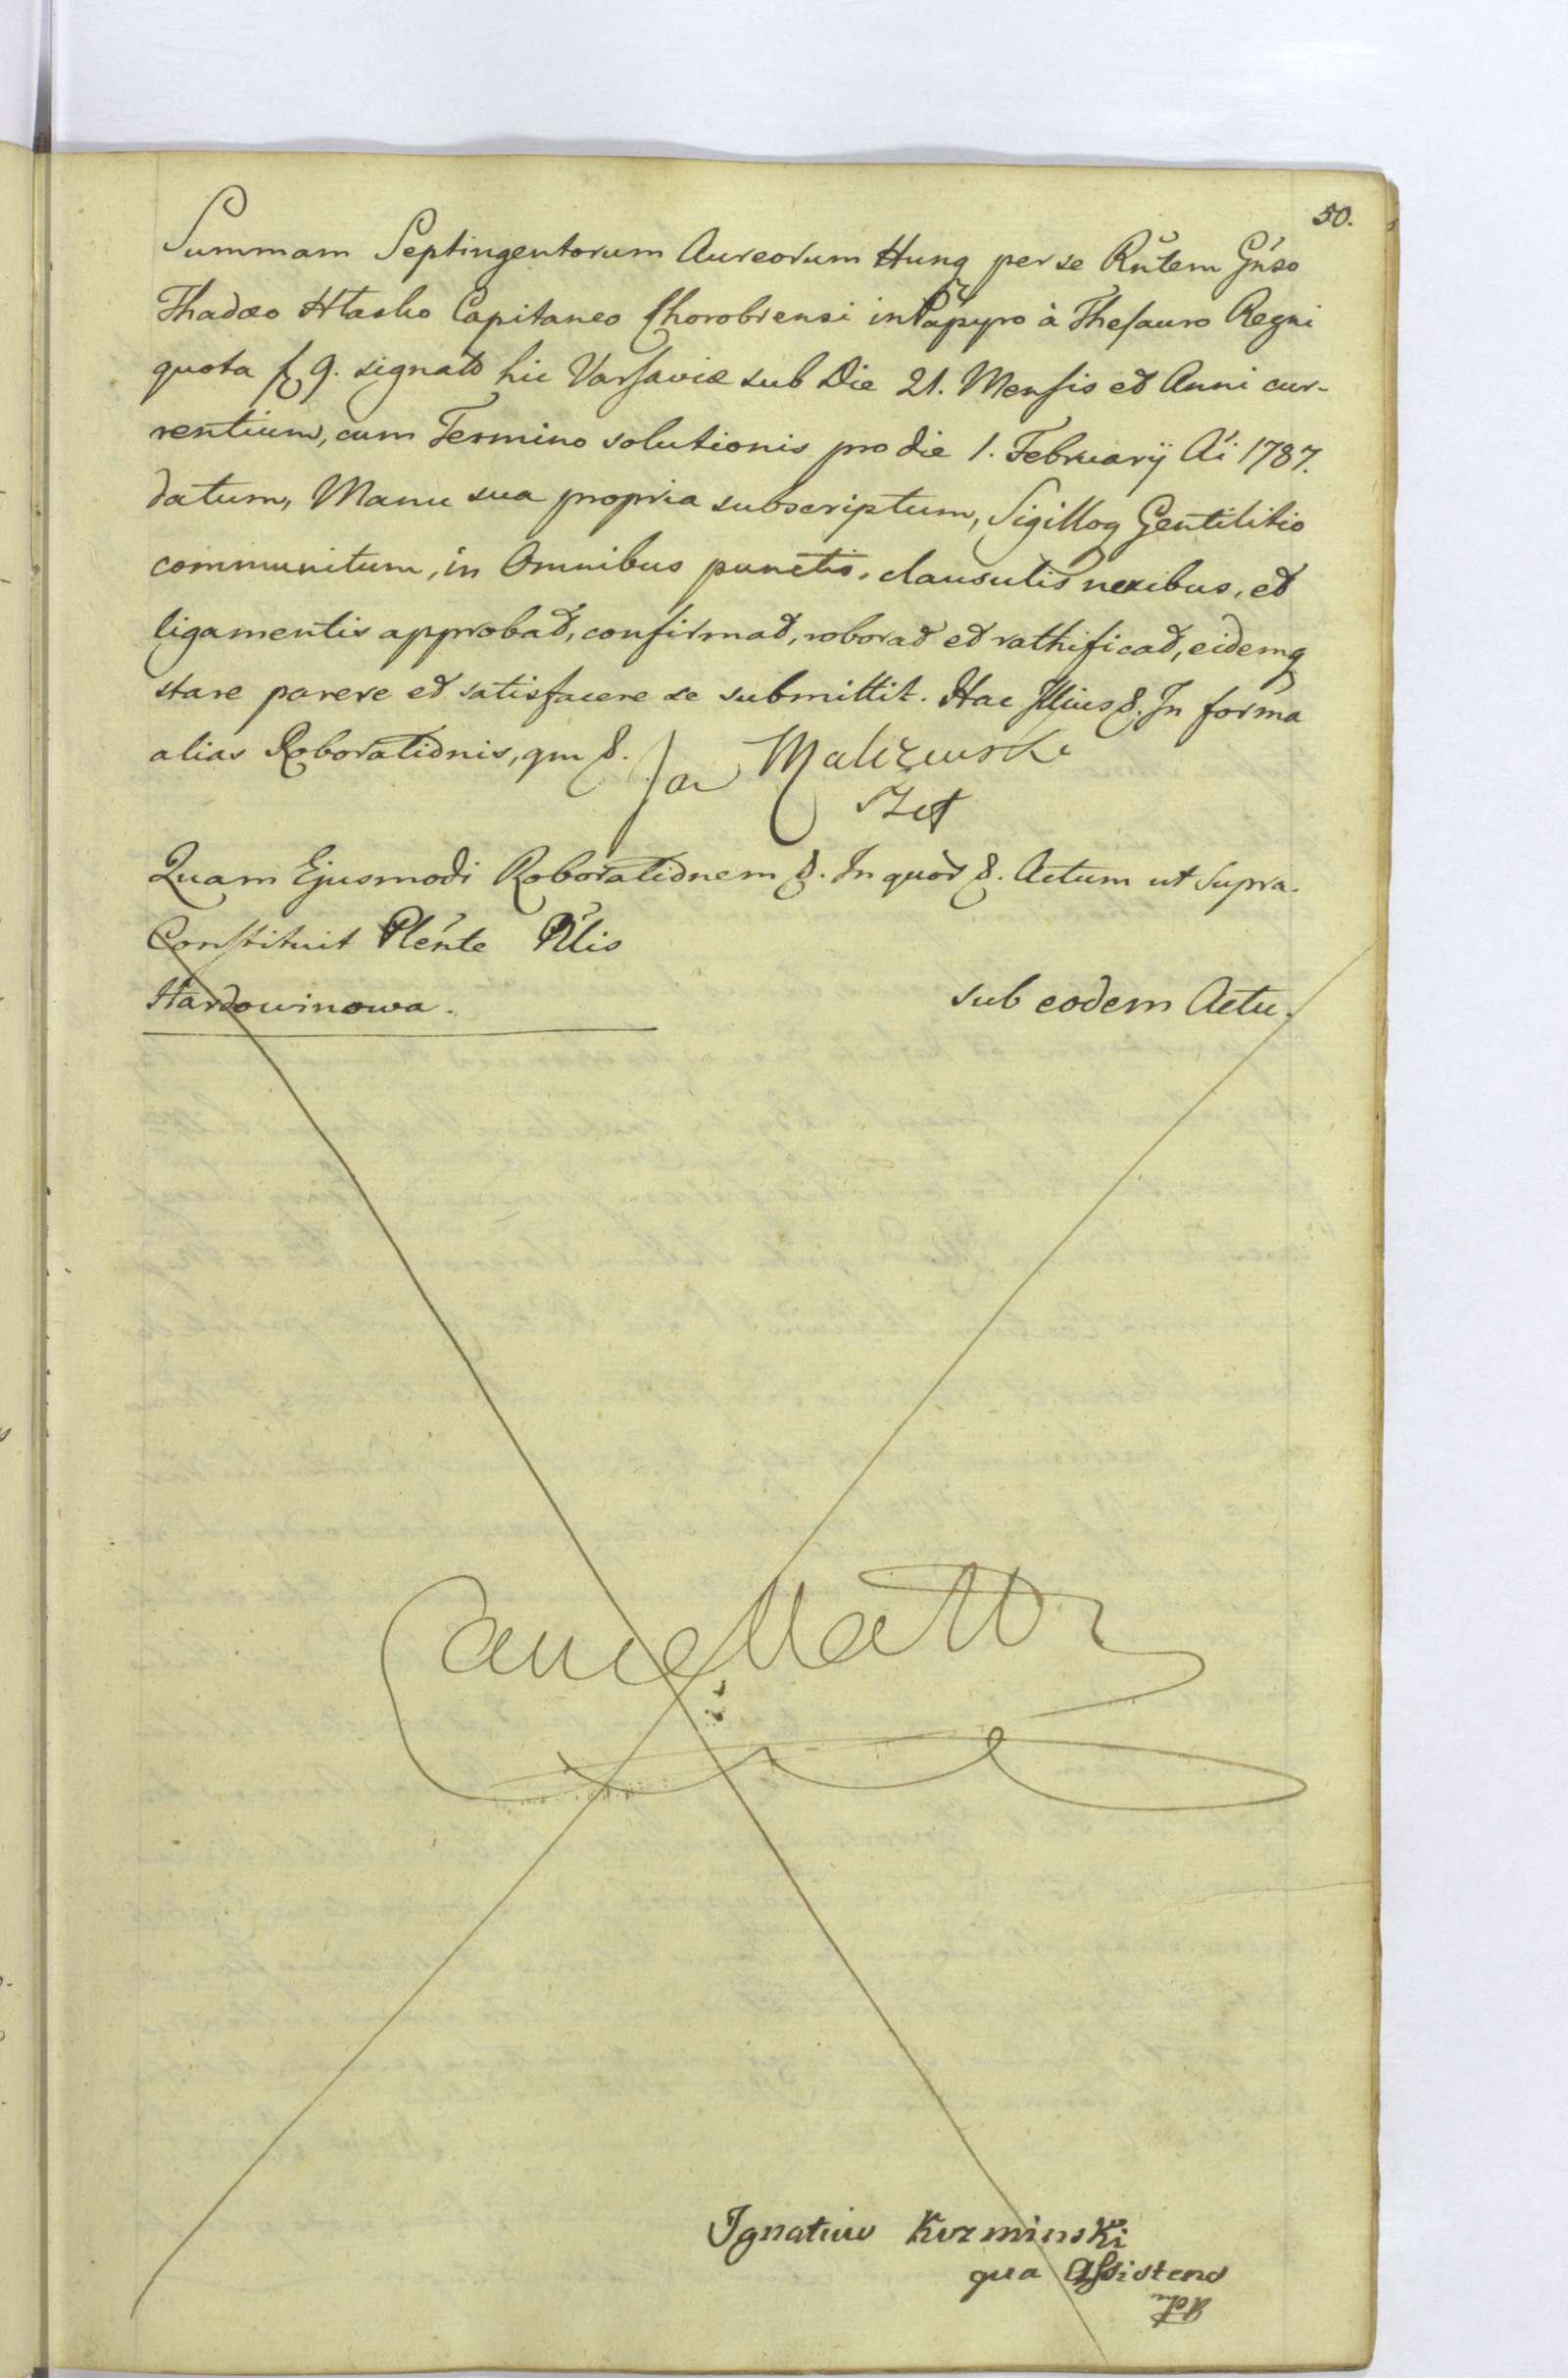 50.
Summam Septingentorum Aureorum Hung per se Rñtem Gñso
Thadæo Hlasko Capitaneo Chorobrensi in Papyro à Thesauro Regni
quota f 9. signato hic Varsaviæ sub Die 21. Mensis et Anni cur-
rentium, cum Termino solutionis pro die 1. Februarÿ Ai 1787.
datum, Manu sua propria subscriptum, Sigilloq Gentilitio
communitum, in Omnibus punctis, clausulis nexibus, et
ligamentis approbat, confirmat, roborat et rathificat, eidemq
stare parere et satisfacere se submittit. Hac Illius &. In forma
alias Roborationis, qm &.
Jan Malczewski
Quam Ejusmodi Roborationem &. In quor &. Actum ut supra.
Constituit Plénte Pñlis
Hardowinowa.
sub eodem Actu.
Cancellattr
Ignatius Kozminski
qua Assistens